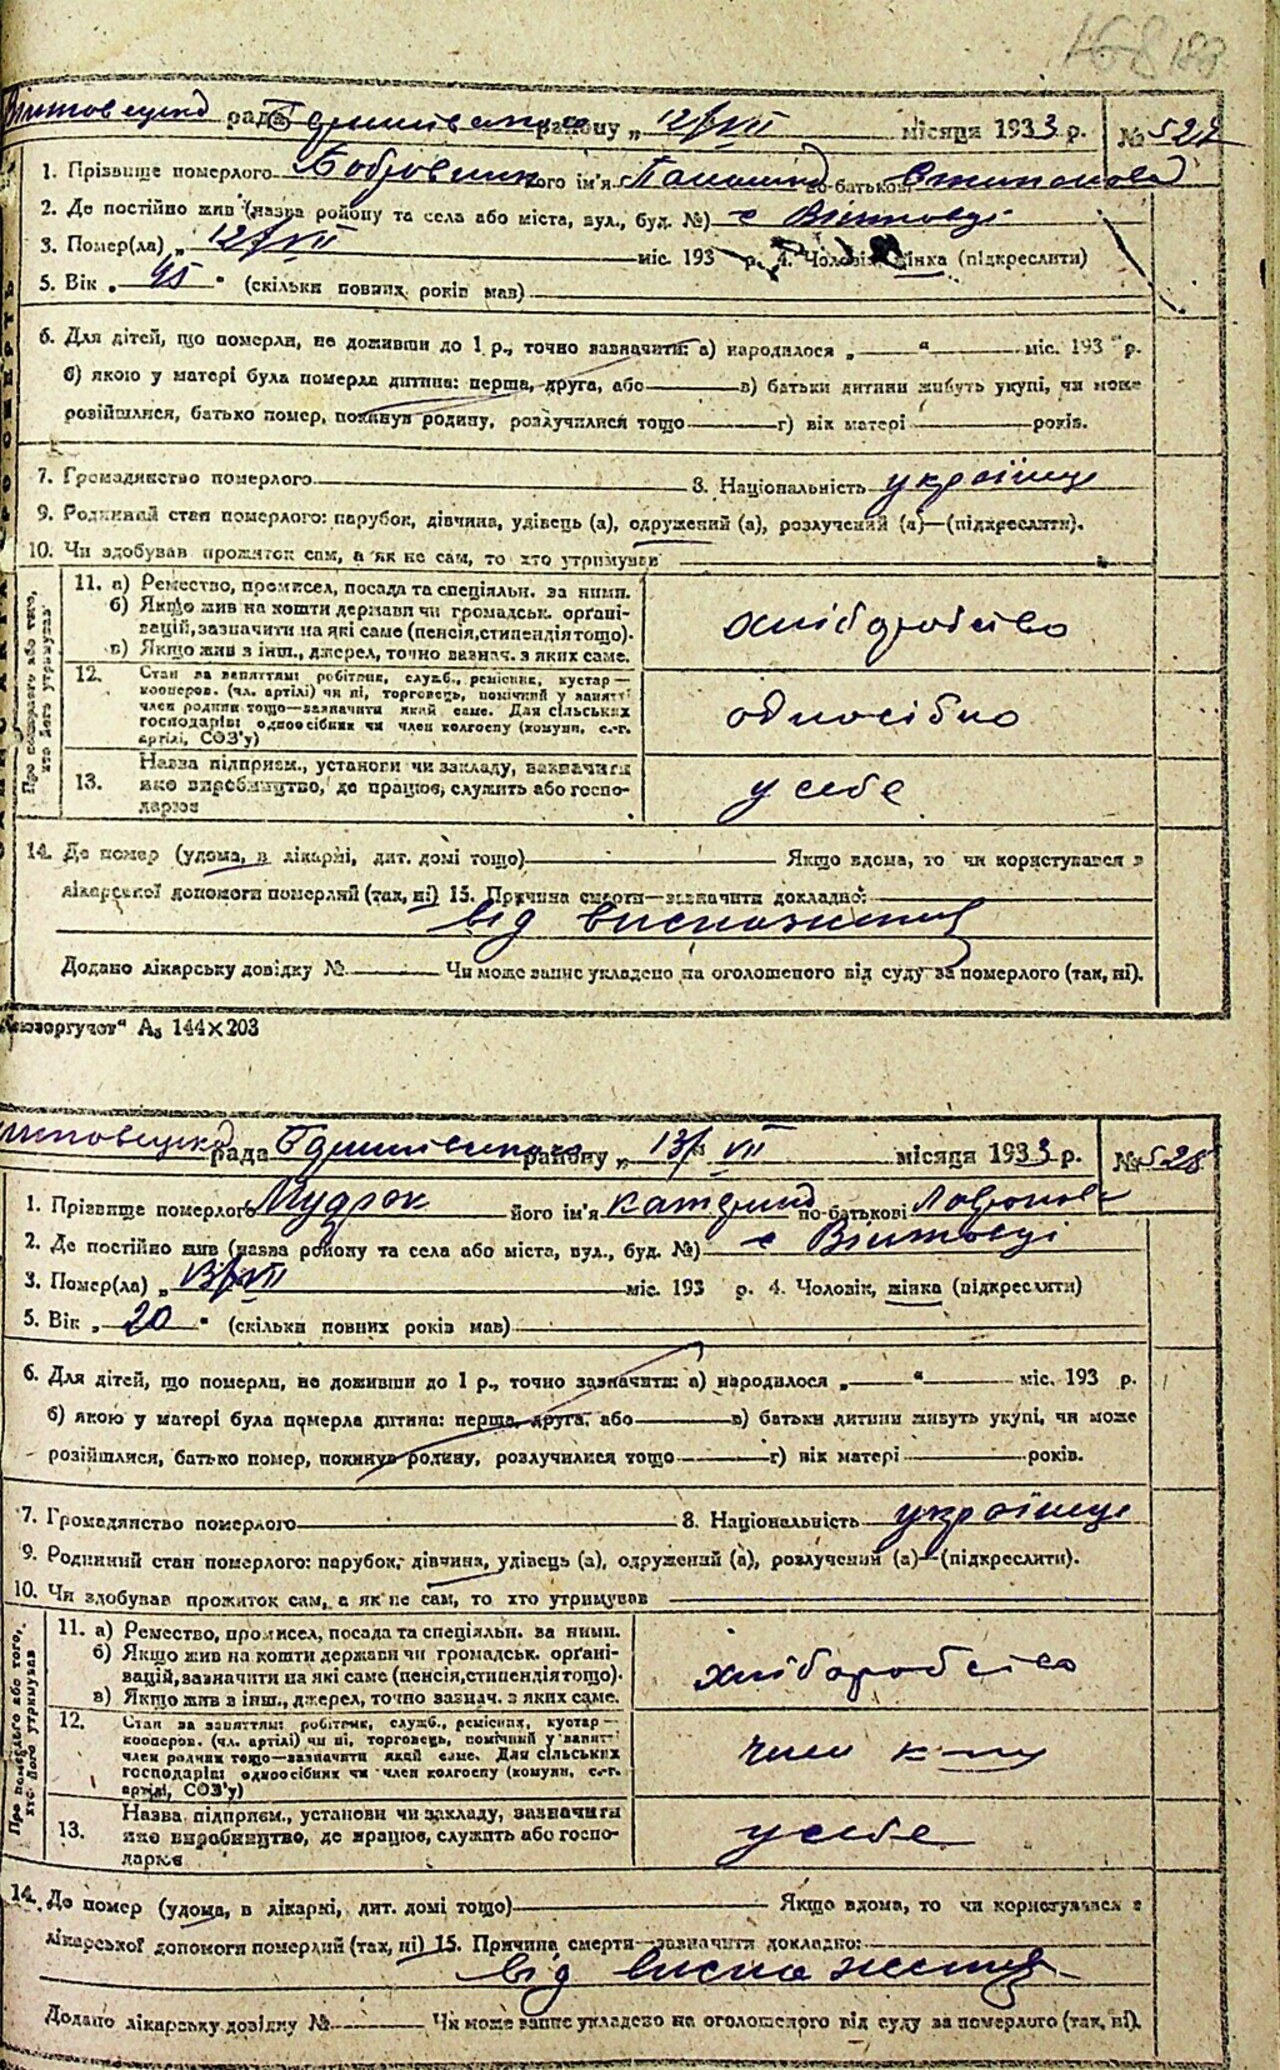 168 188
рада району „ 12/VII місяця 1933 р. № 527
1. Прізвище померлого Бобровник його ім'я по-батькові
2. Де постійно жив (назва району та села або міста, вул., буд. №) с Війтовці
3. Помер(ла) „ 12/VII міс. 193 р. 4. Чоловік, жінка (підкреслити)
5. Вік „ 45 " (скільки повних років мав)
6. Для дітей, що померли, не доживши до 1 р., точно зазначити: а) народилося „ " міс. 193 р.
б) якою у матері була померла дитина: перша, друга, або в) батьки дитини живуть укупі, чи може
розійшлися, батько помер, покинув родину, розлучилися тощо г) вік матері років.
7. Громадянство померлого 8. Національність українц
9. Родинний стан померлого: парубок, дівчина, удівець (а), одружений (а), розлучений (а)—(підкреслити).
10. Чи здобував прожиток сам, а як не сам, то хто утримував
Про померлого або того, хто його утримував
11. а) Ремество, промисел, посада та спеціяльн. за ними.
б) Якщо жив на кошти держави чи громадськ. органі-
зацій, зазначити на які саме (пенсія, стипендія тощо).
в) Якщо жив з інш., джерел, точно зазнач. з яких саме.
хліборобство
12. Стан за заняттям: робітник, служб., ремісник, кустар—
кооперов. (чл. артілі) чи ні, торговець, помічний у занятті
член родини тощо—зазначити який саме. Для сільських
господарів: одноосібник чи член колгоспу (комуни, с.-г.
артілі, СОЗ'у)
одноосібно
13. Назва підприєм., установи чи закладу, зазначити
яке виробництво, де працює, служить або госпо-
дарює
у себе
14. Де помер (удома, в лікарні, дит. домі тощо) Якщо вдома, то чи користувався з
лікарської допомоги померлий (так, ні) 15. Причина смерти—зазначити докладно:
від виснаження
Додано лікарську довідку № Чи може запис укладено на оголошеного від суду за померлого (так, ні).
А₅ 144×203
рада району „ 13/" VII місяця 1933 р. № 528
1. Прізвище померлого Мудрок його ім'я Катерина по-батькові
2. Де постійно жив (назва району та села або міста, вул., буд. №) с Війтовці
3. Помер(ла) „ 13/VII міс. 193 р. 4. Чоловік, жінка (підкреслити)
5. Вік „ 20 " (скільки повних років мав)
6. Для дітей, що померли, не доживши до 1 р., точно зазначити: а) народилося „ " міс. 193 р.
б) якою у матері була померла дитина: перша, друга, або в) батьки дитини живуть укупі, чи може
розійшлися, батько помер, покинув родину, розлучилися тощо г) вік матері років.
7. Громадянство померлого 8. Національність українц
9. Родинний стан померлого: парубок, дівчина, удівець (а), одружений (а), розлучений (а)—(підкреслити).
10. Чи здобував прожиток сам, а як не сам, то хто утримував
Про померлого або того, хто його утримував
11. а) Ремество, промисел, посада та спеціяльн. за ними.
б) Якщо жив на кошти держави чи громадськ. органі-
зацій, зазначити на які саме (пенсія, стипендія тощо).
в) Якщо жив в інш., джерел, точно зазнач. з яких саме.
хліборобство
12. Стан за заняттям: робітник, служб., ремісник, кустар—
кооперов. (чл. артілі) чи ні, торговець, помічний у занятті
член родини тощо—зазначити який саме. Для сільських
господарів: одноосібник чи член колгоспу (комуни, с.-г.
артілі, СОЗ'у)
член
13. Назва підприєм., установи чи закладу, зазначити
яке виробництво, де працює, служить або госпо-
дарює
у себе
14. Де помер (удома, в лікарні, дит. домі тощо) Якщо вдома, то чи користувався з
лікарської допомоги померлий (так, ні) 15. Причина смерти—зазначити докладно:
від виснаження
Додано лікарську довідку № Чи може запис укладено на оголошеного від суду за померлого (так, ні).